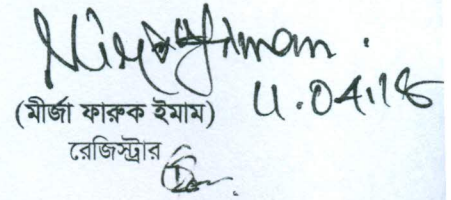 11.04.18
(মীর্জা ফারুক ইমাম)
রেজিস্ট্রার